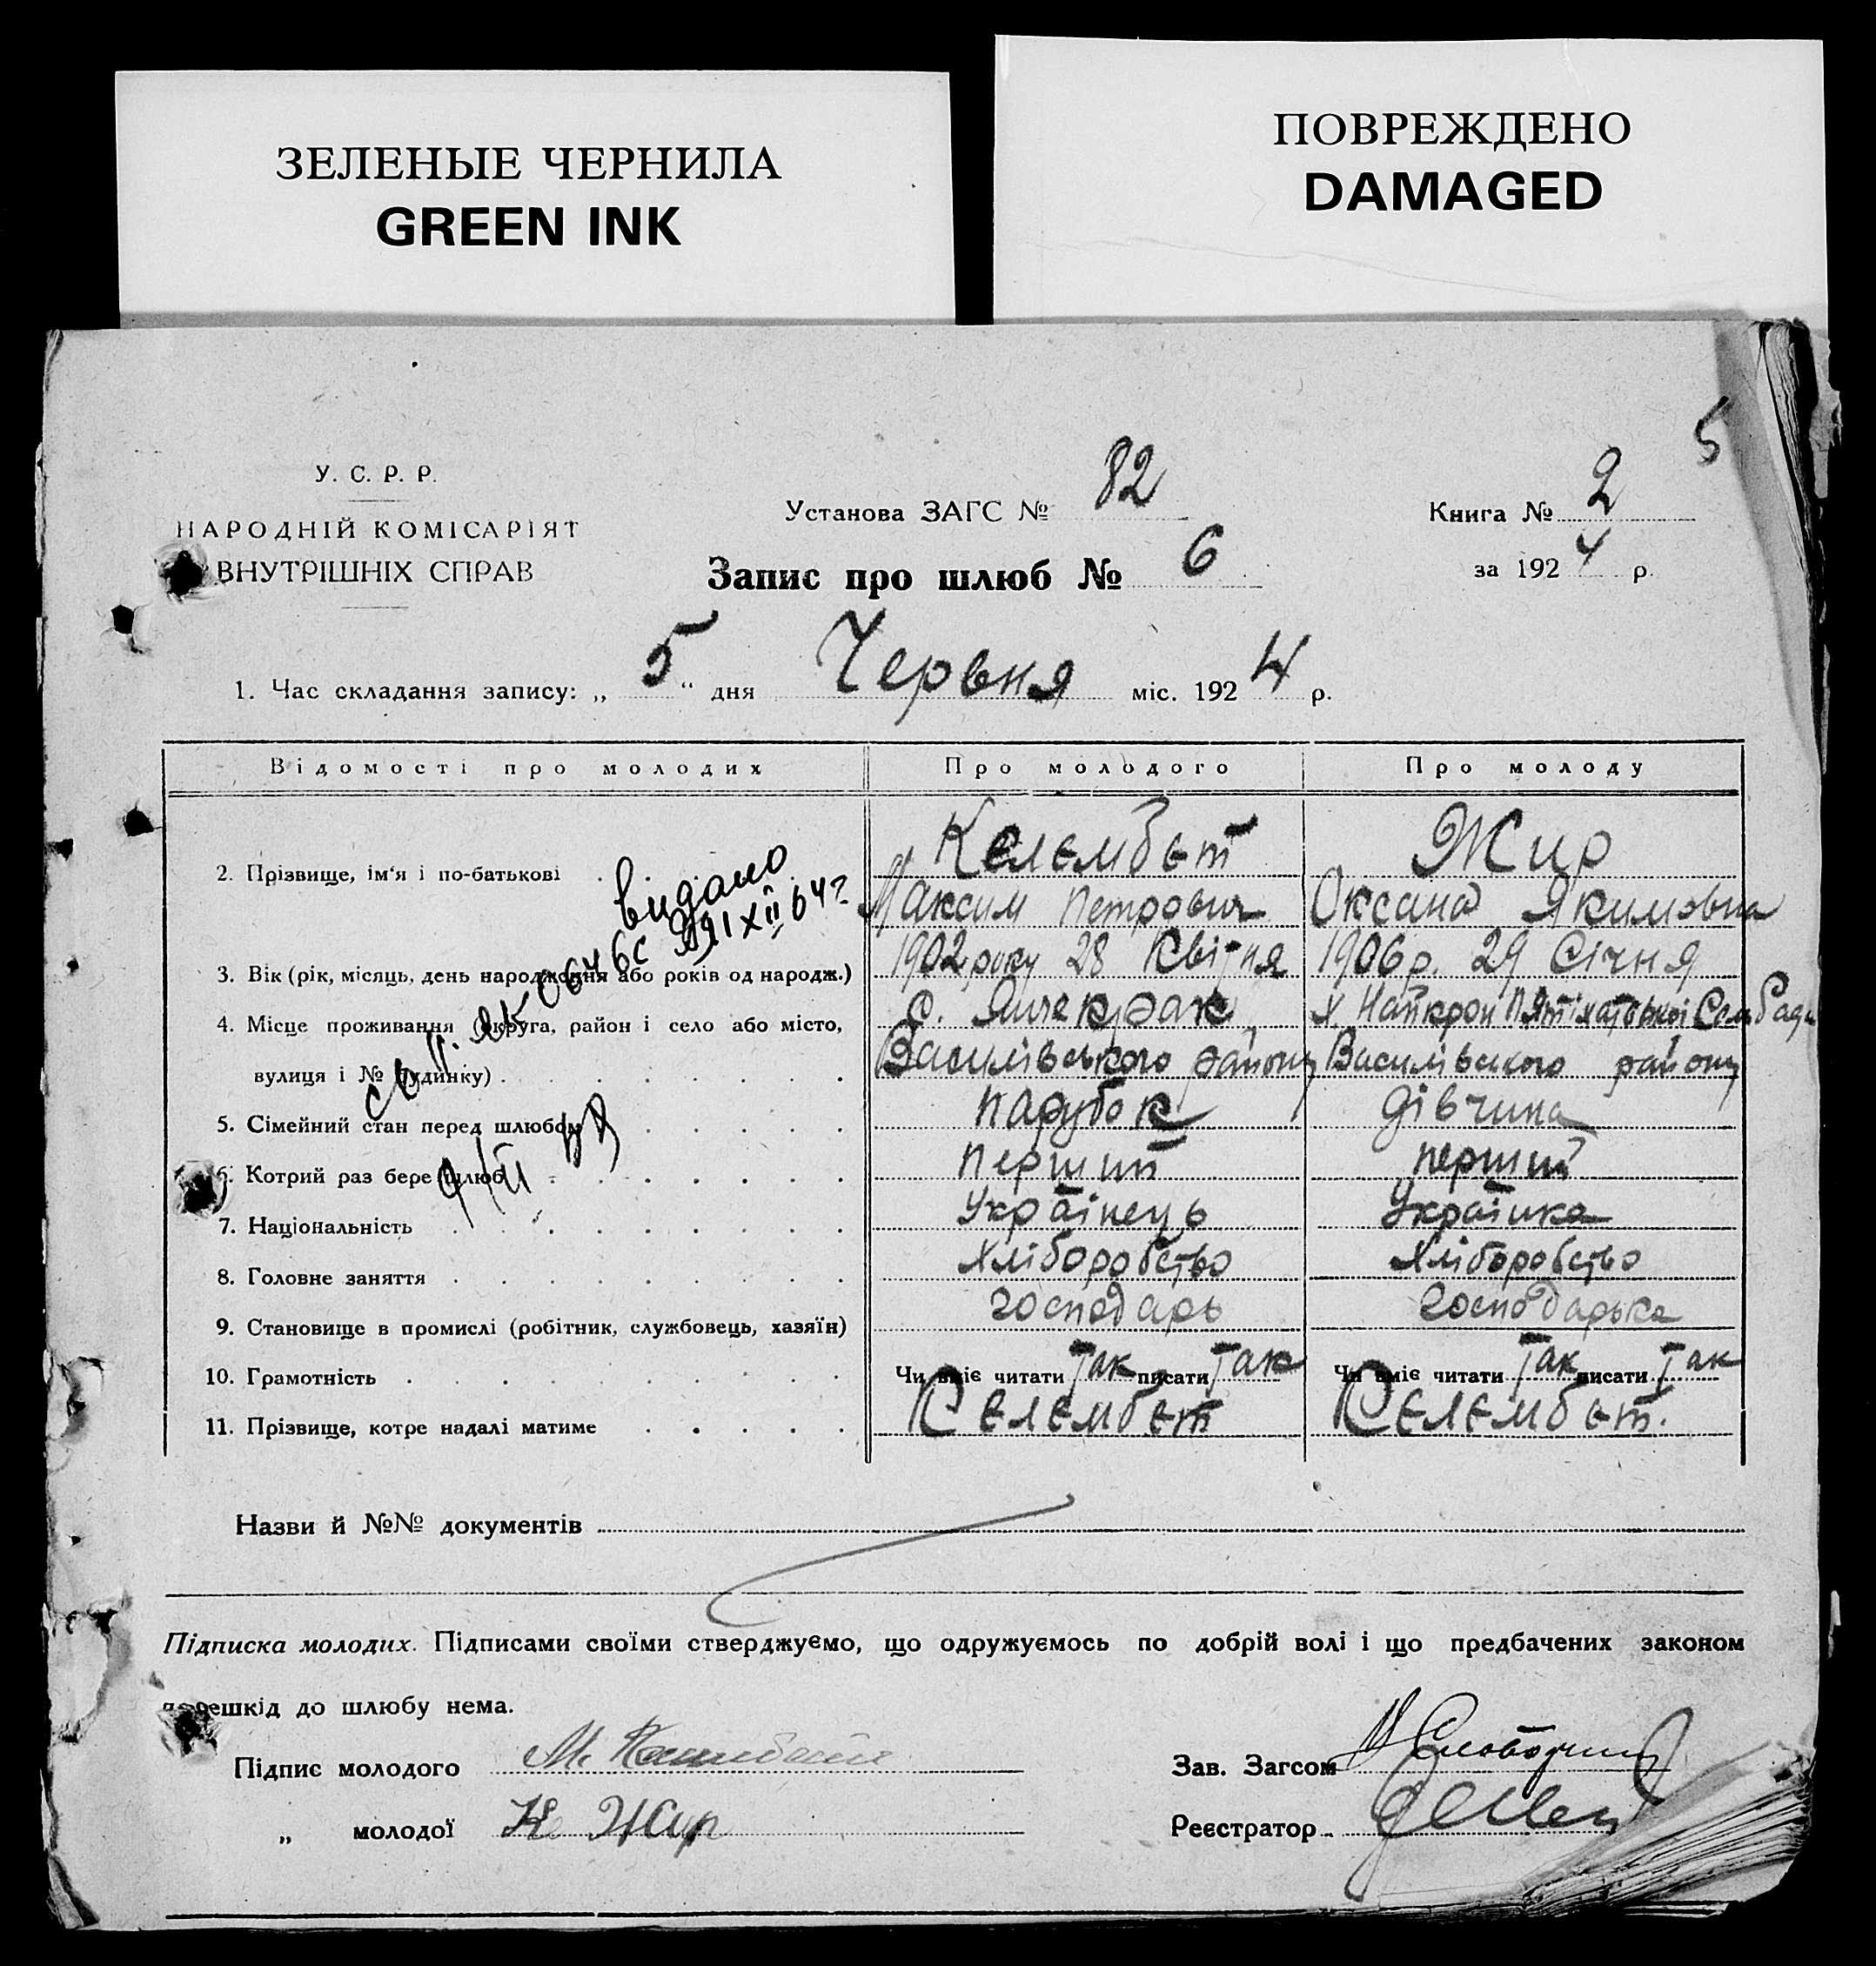 ЗЕЛЕНЫЕ ЧЕРНИЛА
GREEN INK
ПОВРЕЖДЕНО
DAMAGED
5
У. С. Р. Р.
НАРОДНІЙ КОМІСАРІЯТ
ВНУТРІШНІХ СПРАВ
Установа ЗАГС № 82
Запис про шлюб № 6
Книга № 2
за 1924 р.
1. Час складання запису: „5“ дня Червня міс. 1924 р.
Відомості про молодих Про молодого Про молоду
2. Прізвище, ім'я і по-батькові Келембет Жир
Максим Петрович Оксана Якимовна
видано
3. Вік (рік, місяць, день народження або років од народж.) 1902 року 28 Квітня 1906 р. 29 Січня
4. Місце проживання (округа, район і село або місто, с. Янчекрак х. Пятіхатської СельРади
вулиця і № будинку) Василівського району Василівського району
5. Сімейний стан перед шлюбом парубок дівчина
6. Котрий раз бере шлюб перший перший
7. Національність Українець Українка
8. Головне заняття Хліборобство Хліборобство
9. Становище в промислі (робітник, службовець, хазяїн) господарь господарька
10. Грамотність Чи вміє читати Так писати Так Чи вміє читати Так писати Так
11. Прізвище, котре надалі матиме Келембет Келембет.
Назви й №№ документів
Підписка молодих. Підписами своїми стверджуємо, що одружуємось по добрій волі і що предбачених законом
перешкід до шлюбу нема.
Підпис молодого М.
Зав. Загсом
„ молодої Жир
Реєстратор